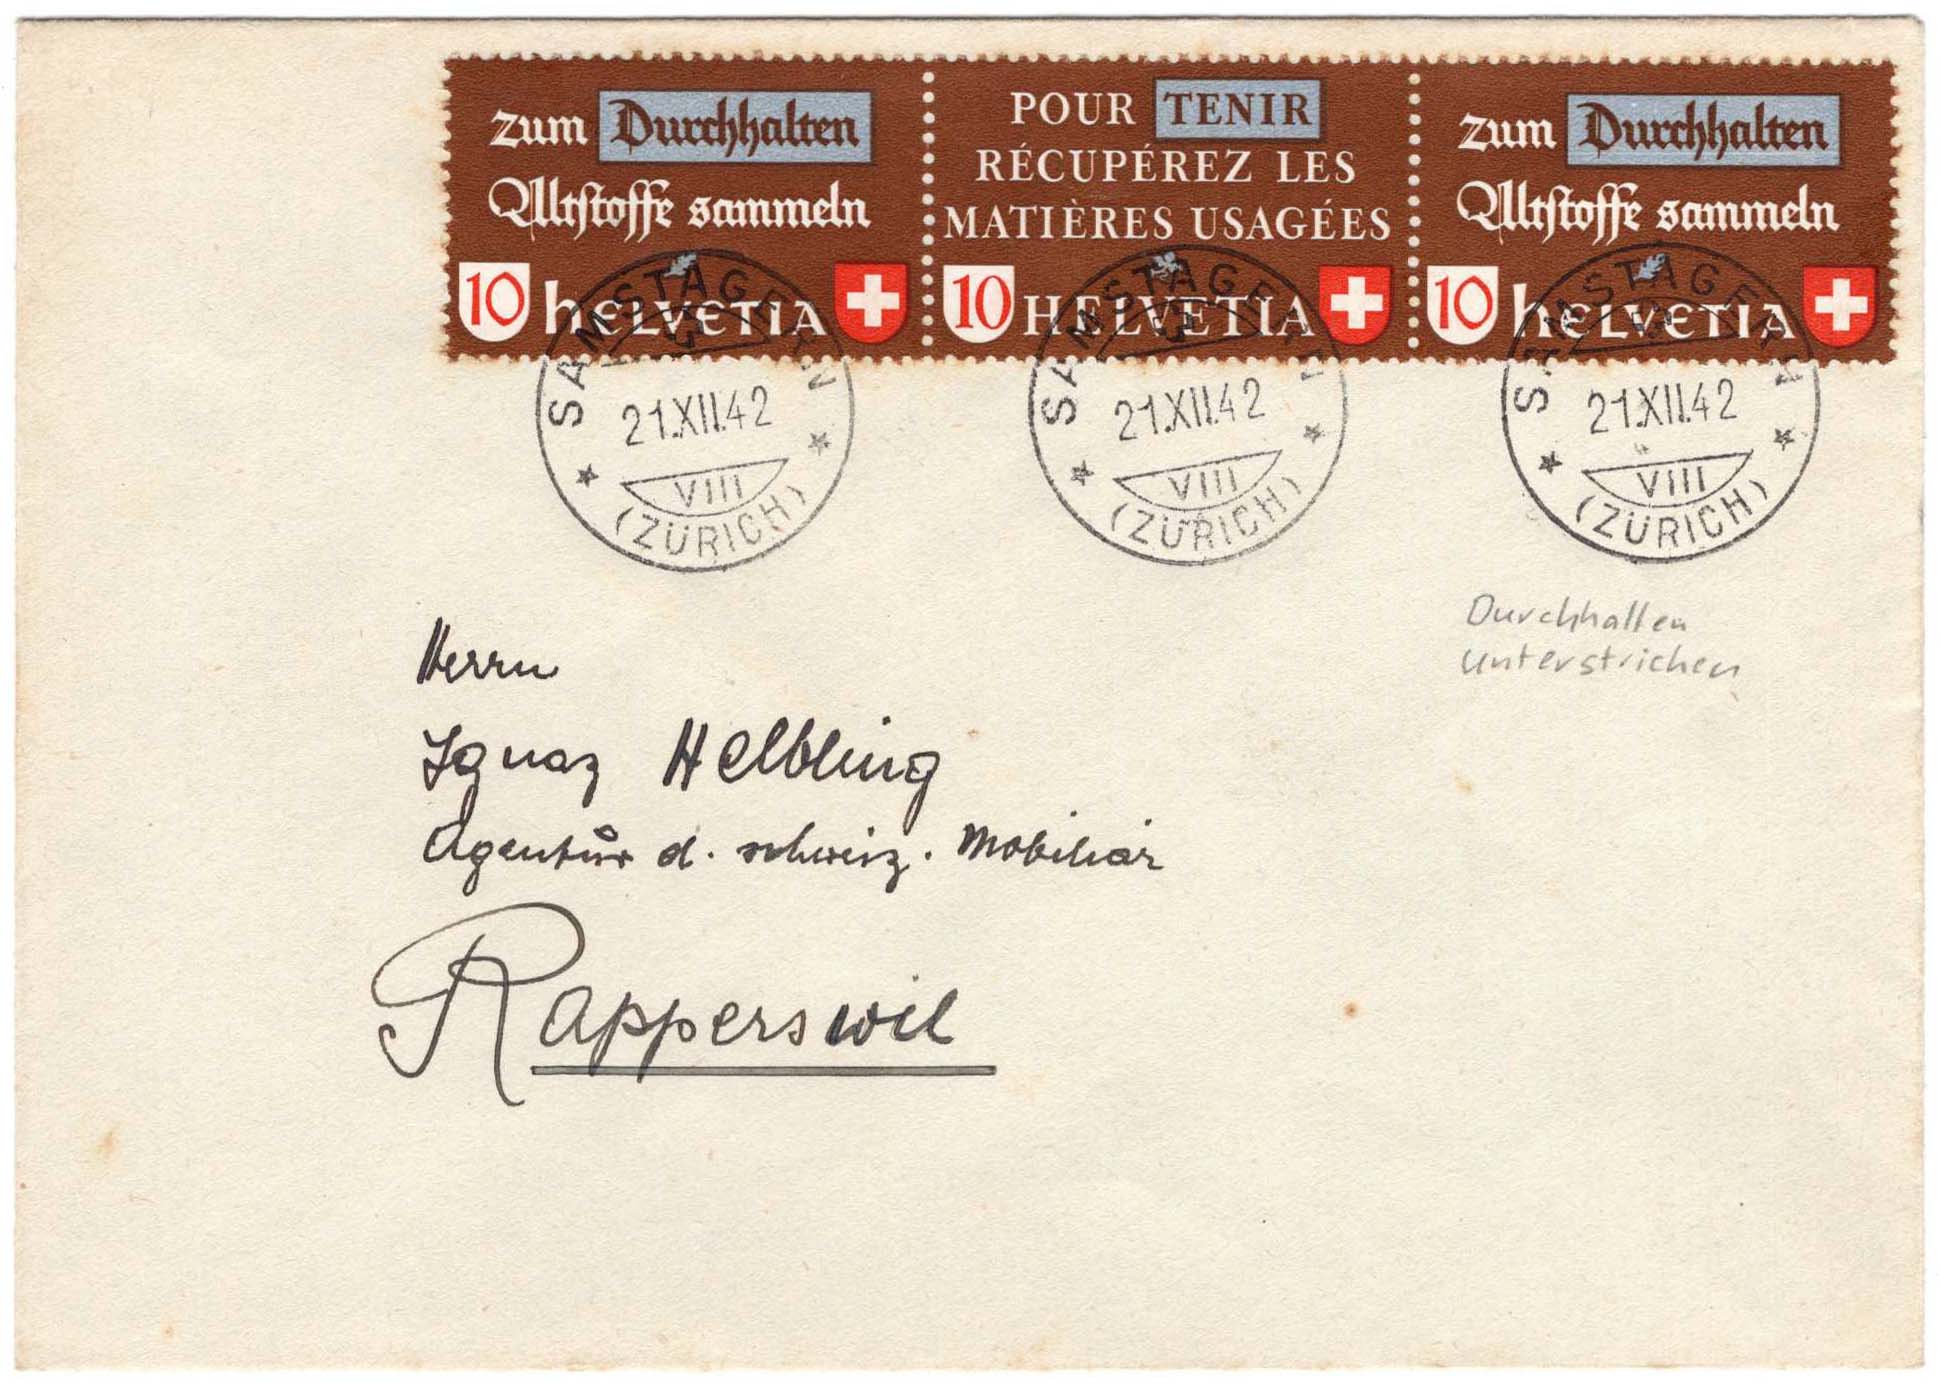 zum Durchhalten
Altstoffe sammeln
10 HELVETIA
POUR TENIR
RÉCUPÉREZ LES
MATIÈRES USAGÉES
10 HELVETIA
zum Durchhalten
Altstoffe sammeln
10 HELVETIA
SAMSTAGERN
21.XII.42
VIII
(ZÜRICH)
SAMSTAGERN
21.XII.42
VIII
(ZÜRICH)
SAMSTAGERN
21.XII.42
VIII
(ZÜRICH)
Durchhalten
unterstrichen
Herrn
Ignaz Helbling
Agentur d. schweiz. Mobiliar
Rapperswil